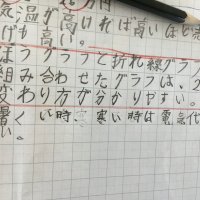 気温が高ければ高いほど
げも高い。
ぼうグラフと折れ線グラフ
組み合わせたグラフは、2
変わり方が分かりやすい。
暑い時、寒い時は電気代
い。